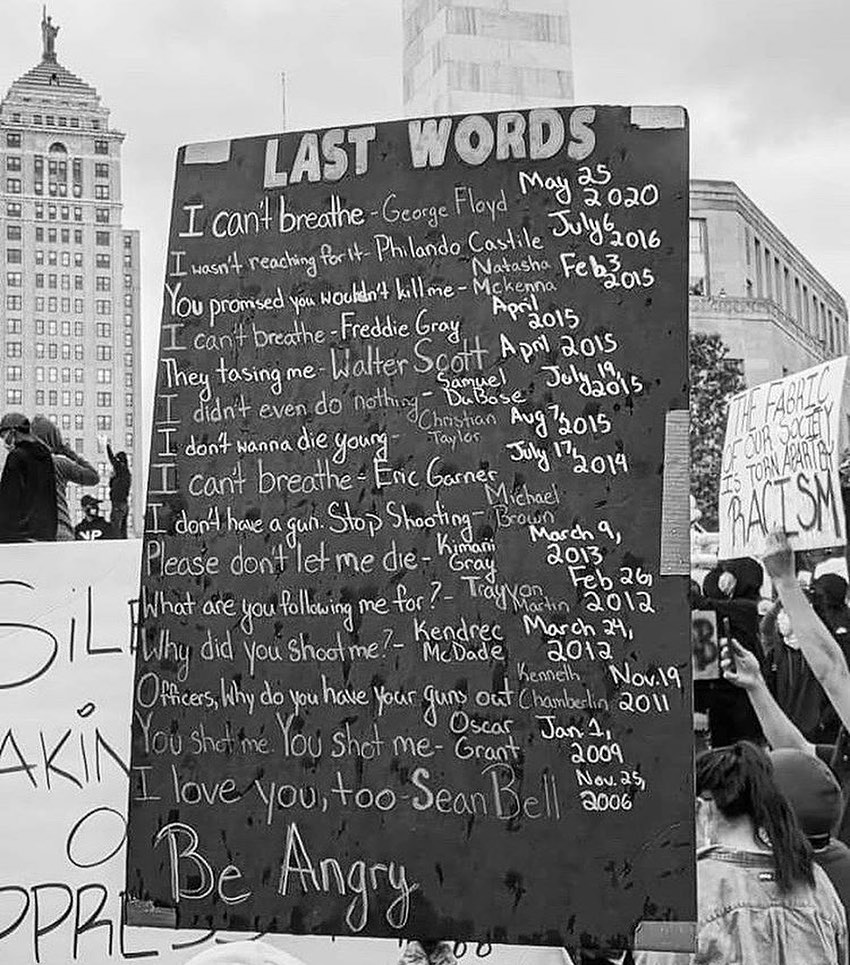 LAST WORDS
I can't breathe - George Floyd May 25 2020
I wasn't reaching for it - Philando Castile July 6 2016
You promised you wouldn't kill me - Natasha Mckenna Feb 3 2015
I can't breathe - Freddie Gray April 2015
They tasing me - Walter Scott April 2015
I didn't even do nothing - Samuel DuBose July 19, 2015
I don't wanna die young - Christian Taylor Aug 7, 2015
I can't breathe - Eric Garner July 17, 2014
I don't have a gun. Stop Shooting - Michael Brown
Please don't let me die - Kimani Gray March 9, 2013
What are you following me for? - Trayvon Martin Feb 26, 2012
Why did you shoot me? - Kendrec McDade March 24, 2012
Officers, Why do you have your guns out Kenneth Chamberlin Nov. 19 2011
You shot me. You shot me - Oscar Grant Jan. 1, 2009
I love you, too - Sean Bell Nov. 25, 2006
Be Angry
THE FABRIC
OF OUR SOCIETY
IS TORN APART BY
RACISM
SiLE
AKiN
O
PPRESS